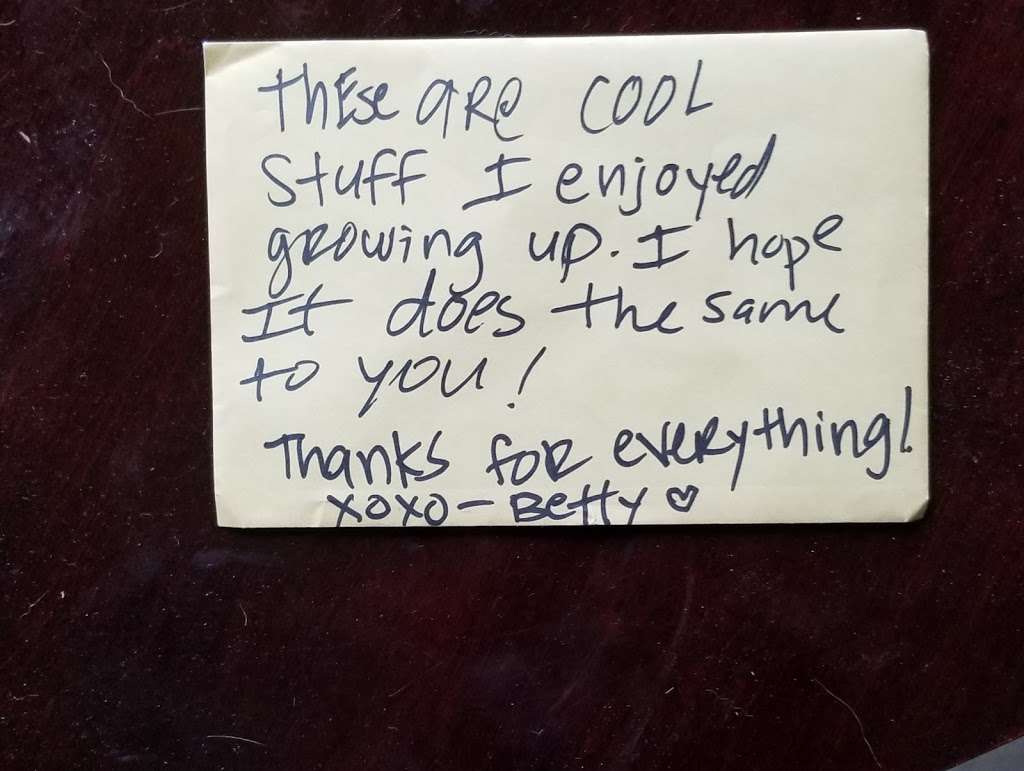 These are cool
stuff I enjoyed
growing up. I hope
It does the same
to you!
Thanks for everything!
xoxo - Betty ♡